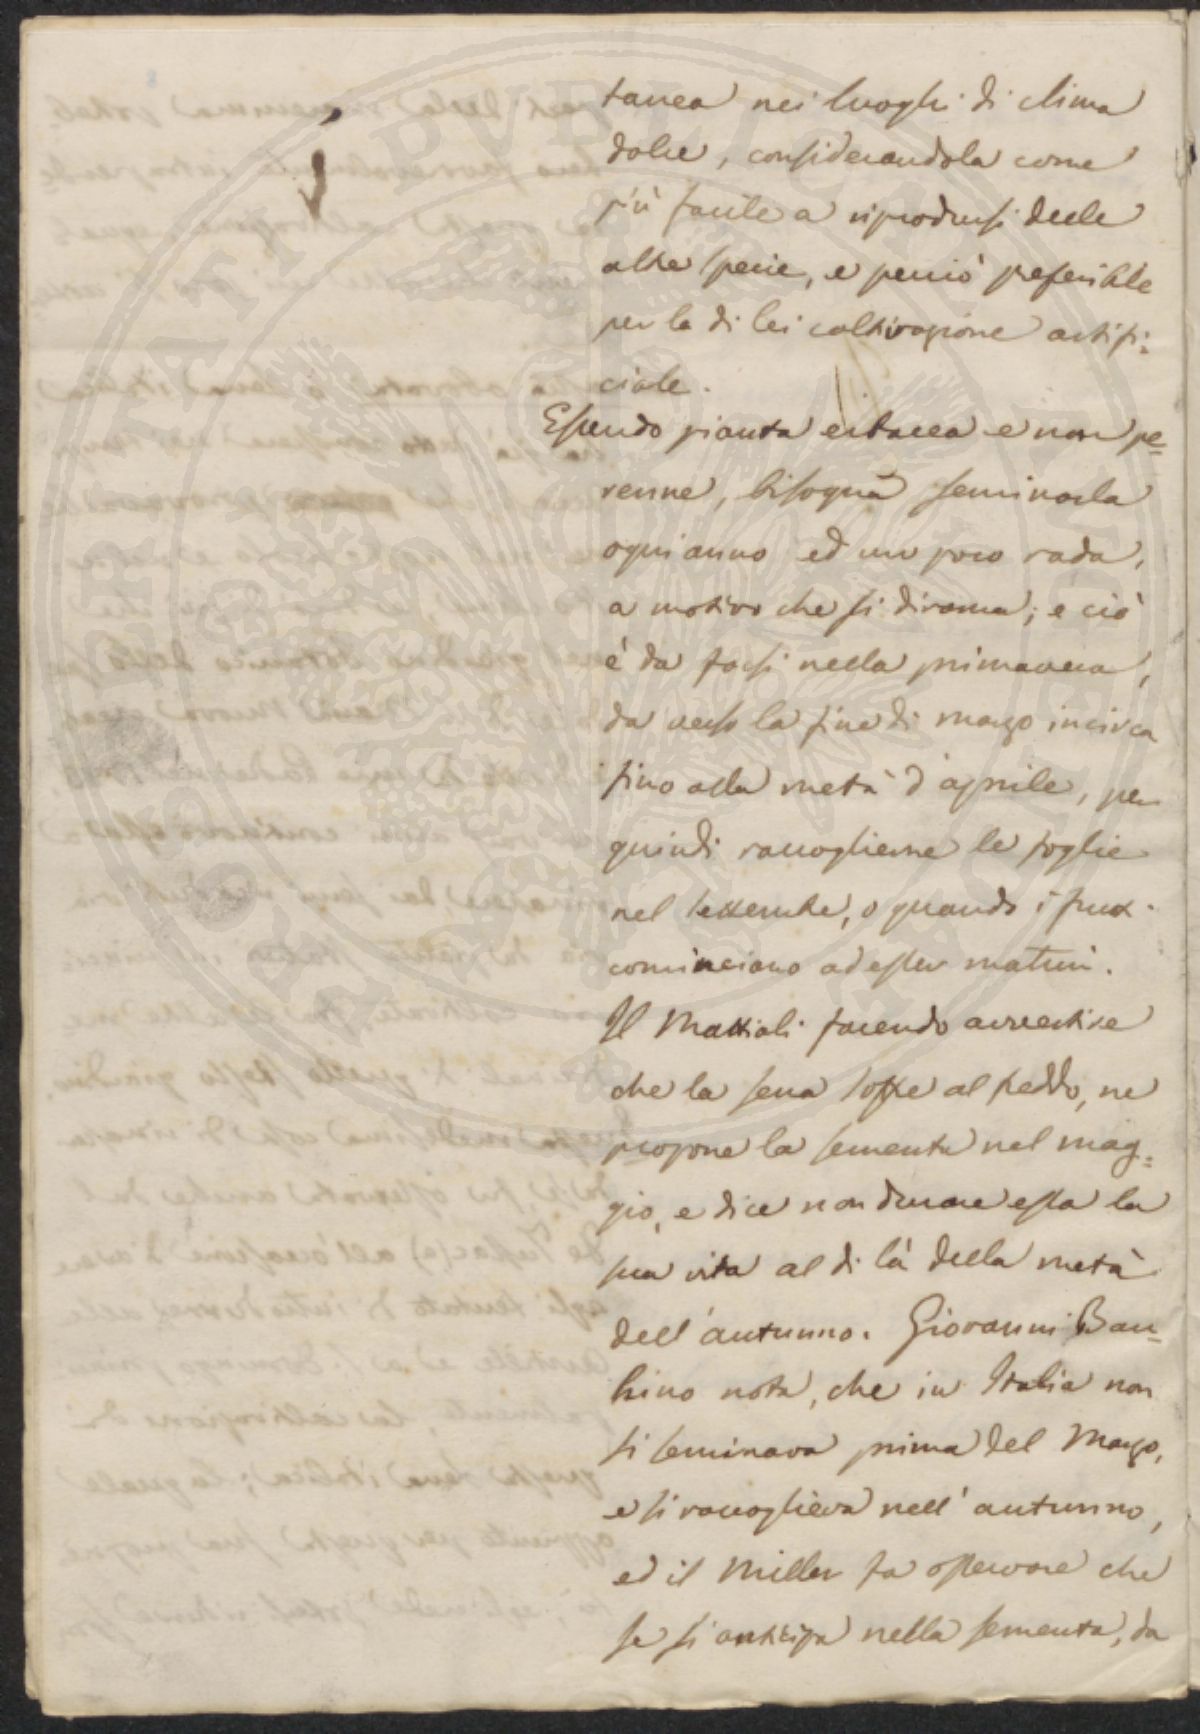 tanea nei luoghi di clima
dolce, considerandola come
più facile a riprodursi delle
altre specie, e perciò preferibile
per la di lei coltivazione artifi=
ciale.
Essendo pianta erbacea e non pe=
renne, bisogna seminarla
ogni anno ed un poco rada,
a motivo che si dirama; e ciò
è da farsi nella primavera,
da verso la fine di marzo incirca
fino alla metà d'aprile, per
quindi raccoglierne le foglie
nel settembre, o quando i frut.
cominciano ad esser maturi.
Il Mattioli facendo avvertire
che la sena soffre al freddo, ne
propone la sementa nel mag=
gio, e dice non durare essa la
sua vita al di là della metà
dell'autunno. Giovanni Bau=
hino nota, che in Italia non
si seminava prima del Marzo,
e si raccoglieva nell'autunno,
ed il Miller fa osservare che
se si anticipa nella sementa, da